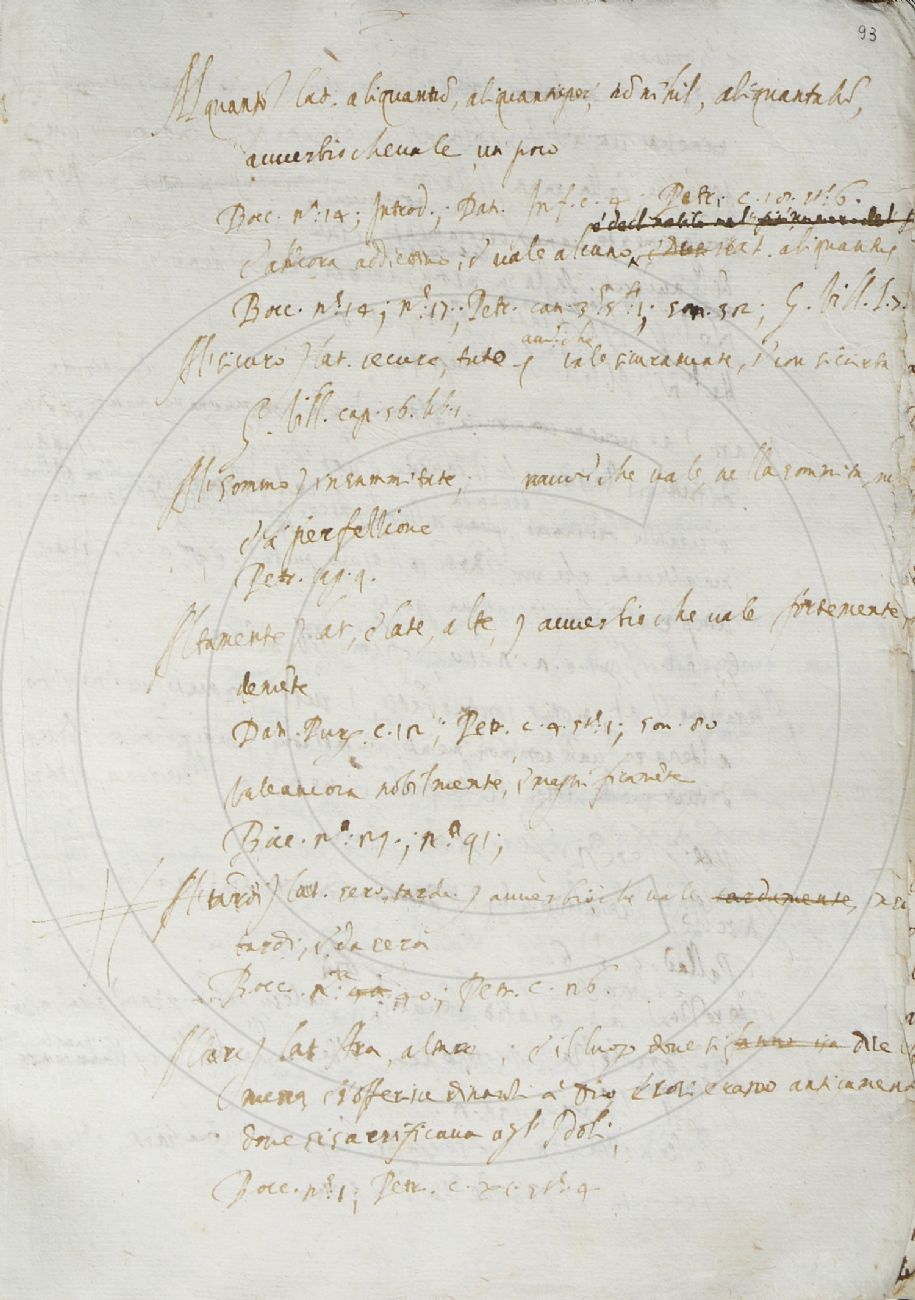 93
Alquanto) lat. aliquantū, aliquantisper, nō nihil, aliquantulū,
auuerbio che uale un poco
Bocc. nᵃ. 14; Introd.; Dan. Inf. c. 4; Petr. c. 18. stᵃ. 6.
è ancora addiettiuo, è uale alcuno, lat. aliquantus
Bocc. nᵃ. 14; nᵃ. 17; Petr. can. 3. stᵃ. 1; son. 302; G. Vill. l. 7.
auuᵒ. che
Al sicuro) lat. secure, tute, uale sicuramente, è con sicurtà
G. Vill. cap. 56. lib. 1
Al sommo) in summitate, che uale, nella sommità,
è à perfettione
Petr. cap. 9.
Altamente) lat, elate, alte, ) auuerbio che uale fortemente
Dan. Purg. c. 12; Petr. c. 4. stᵃ. 1; son. 80
Vale ancora nobilmente, è magnificamēte
Bocc. nᵃ. 27.; nᵃ. 91;
Al tardi) lat. sero, tarde ) auuerbio che uale tardamente, in su
tardi, è da sera
Bocc. Petr. c. 26
Altare) lat. Ara, altare; è il luogo doue si dice
messa è offerisce è anticamente
doue si sacrificaua agl' Idoli;
Bocc. nᵃ. 1; Petr. c.